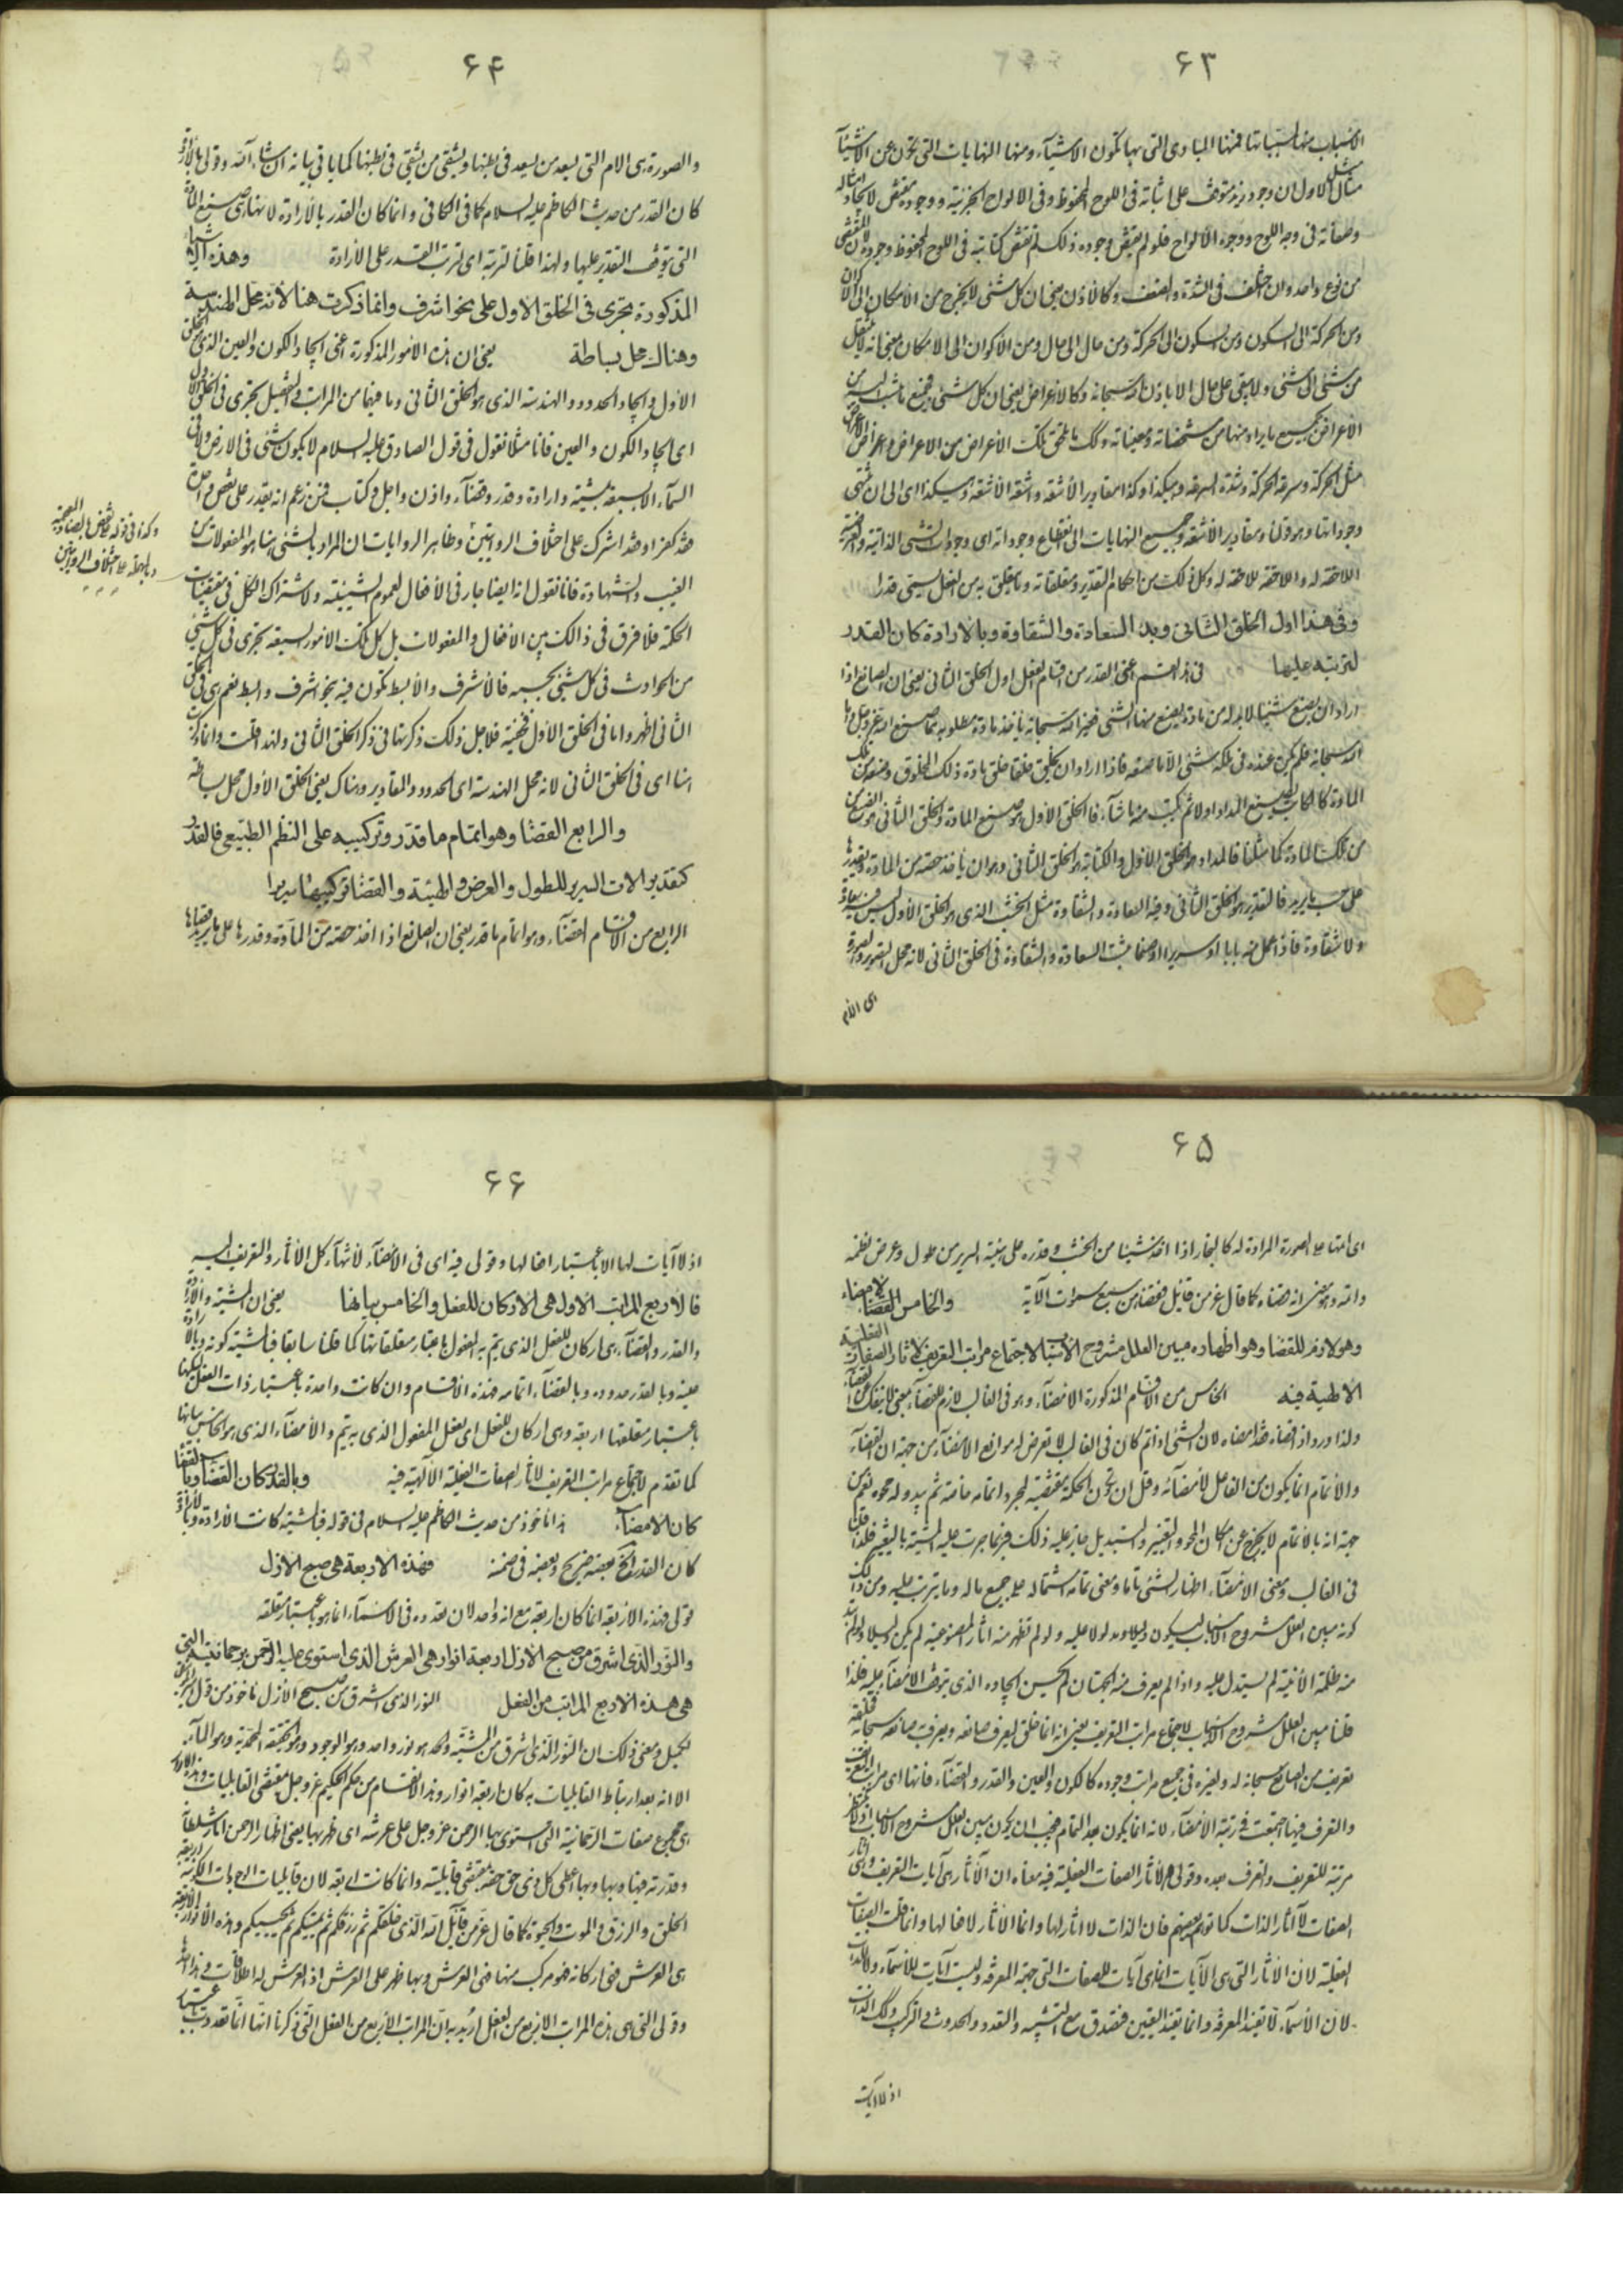 ۶۳
الاسباب منها لمسبباتها فمنها المبادى التى بها تكون الاشيآء ومنها النهايات التى تكون عن الاشيآء
مثال الاول ان وجود زيد متوقف على اثباته فى اللوح المحفوظ وفى الالواح الجزئية ووجوده مقتض لايجاد امثاله
فى وجه اللوح ووجوه الالواح فلو لم يقتض وجوده ذلك لم تقتض كتابته فى اللوح المحفوظ وجوده
من نوع واحد وان اختلف فى الشدة والضعف وكالاذن يعنى ان كل شئى لا يخرج من الامكان الى الاكوان
ومن الحركة الى السكون ومن السكون الى الحركة ومن حال الى حال ومن الاكوان الى الامكان بمعنى انه لا ينتقل
من شئى الى شئى ولا يبقى على حال الا باذن الله سبحانه وكالاعراض يعنى ان كل شئى فجميع ما ينسب اليه من
الاعراض جميع ما يراد منها من مشخصاته ومعيناته وكك ما يلحق تلك الاعراض من الاعراض واعراض الاعراض
مثل الحركة وسرعة الحركة وشدة السرعة وهيكذا وكذا مقادير الاشعة واشعة الاشعة وهيكذا اى الى ان تنتهى
وجوداتها وهو قولنا ومقادير الاشعة وجميع النهايات الى انقطاع وجوداته اى وجودات الشئى الذاتية والعرضية
اللاحقة له واللاحقة للاحقة له وكل ذلك من احكام التقدير ومتعلقاته وما يتعلق به من الفعل يسمى قدرا
وفى هذا اول الخلق الثانى وبدء السعادة والشقاوة وبالارادة كان القدر
لترتبه عليها فى هذا القسم اعنى القدر من اقسام الفعل اول الخلق الثانى يعنى ان الصانع اذا
اراد ان يصنع شيئا لا بد له من مادة يصنع منها الشئى فغير الله سبحانه ياخذ مادة مطلوبه مما صنع الله عز وجل واما
الله سبحانه فلم يكن عنده فى ملكه شئى الا ما صنعه فاذا اراد ان يخلق خلقا خلق مادة ذلك المخلوق وصنعه من تلك
المادة كالكاتب يصنع المداد اولا ثم يكتب منه ما شآء فالخلق الاول هو صنع المادة والخلق الثانى هو الصنع من
تلك المادة كما مثلنا فالمداد هو الخلق الاول والكتابة هو الخلق الثانى وهو ان ياخذ حصة من المادة ويقدرها
على حسب ما يريد فالتقدير هو الخلق الثانى وفيه السعادة والشقاوة مثل الخشب الذى هو الخلق الاول ليس فيه سعادة
ولا شقاوة فاذا عمل منه بابا او سريرا او صنما جائت السعادة والشقاوة فى الخلق الثانى لانه محل التصوير والصورة
هى الام
۶۴
والصورة هى الام التى يسعد من يسعد فى بطنها ويشقى من يشقى فى بطنها كما ياتى بيانه ان شاء الله وقولى وبالارادة
كان القدر من حديث الكاظم عليه السلام كما فى الكافى وانما كان القدر بالارادة لانها هى صنع المادة
التى يتوقف التقدير عليها ولهذا قلنا لترتبه اى لترتب القدر على الارادة وهذه الاشياء
المذكورة تجرى فى الخلق الاول على نحو اشرف وانما ذكرت هنا لانه محل الهندسة
وهناك محل بساطة يعنى ان هذه الامور المذكورة اعنى ايجاد الكون والعين الذى هو الخلق
الاول وايجاد الحدود والهندسة الذى هو الخلق الثانى وما فيهما من المراتب والتفصيل تجرى فى الخلق الاول
اى ايجاد الكون والعين فانا مثلا نقول فى قول الصادق عليه السلام لا يكون شئى فى الارض ولا فى
السمآء الا بسبعة بمشية وارادة وقدر وقضآء واذن واجل وكتاب فمن زعم انه يقدر على نقص واحدة
فقد كفر او فقد اشرك على اختلاف الروايتين وظاهر الروايات ان المراد بالشئى هنا هو المفعولات من
الغيب والشهادة فانا نقول انه ايضا جار فى الافعال لعموم الشيئية ولاشتراك الكل فى مقتضيات
الحكمة فلا فرق فى ذالك بين الافعال والمفعولات بل كل تلك الامور السبعة تجرى فى كل شئى
من الحوادث فى كل شئى بحسبه فالاشرف والابسط تكون فيه بنحو اشرف وابسط نعم هى فى الخلق
الثانى اظهر واما فى الخلق الاول فخفية فلاجل ذلك ذكرتها فى ذكر الخلق الثانى ولهذا قلت وانما ذكرت
هنا اى فى الخلق الثانى لانه محل الهندسة اى الحدود والمقادير وهناك يعنى الخلق الاول محل بساطة
والرابع القضا وهو اتمام ما قدّر وتركيبه على النظم الطبيعى فالقدر
كتقدير الات السرير للطول والعرض والهيئة والقضا تركيبها سريرا
الرابع من الاقسام القضآء وهو اتمام ما قدر يعنى ان الصانع اذا اخذ حصة من المآدة وقدرها على ما يريد قضاها
وكذا فى قوله على نقص
وبالجملة على اختلاف الروايتين
۶۵
اى اتمها على الصورة المرادة له كالنجار اذا اخذ شيئا من الخشب وقدره على هيئة السرير من طول وعرض نظمه
واتمه وهو معنى انه قضاه كما قال عز من قائل فقضاهن سبع سموات الآية والخامس الامضاء
وهو لازم للقضا وهو اظهاره مبين العلل مشروح الاسباب لاجتماع مراتب التعريف لاثار الصفات الفعلية
الالهية فيه الخامس من الاقسام المذكورة الامضآء وهو فى الغالب لازم للقضآء بمعنى لا ينفك عن القضآء
ولذا ورد اذا قضاه فقد امضاه لان الشئى اذا تم كان فى الغالب لا تعرض له موانع الامضآء من جهة ان القضآء
والاتمام انما يكون من الفاعل لامضآئه وقل ان تكون الحكمة مقتضية لمجرد اتمامه خاصة ثم يبدو له محوه نعم من
جهة انه بالاتمام لا يخرج عن امكان المحو والتغيير والتبديل جاز عليه ذلك فربما جرت عليه المشية بالتغيير فلذا قلنا
فى الغالب ومعنى الامضآء اظهار الشئى تاما ومعنى تمامه اشتماله على جميع ما له وما يترتب عليه ومن ذالك
كونه مبين العلل مشروح الاسباب ليكون دليلا ومدلولا عليه ولو لم تظهر منه اثار المصنوعية لم يكن دليلا ولو لم
منه ظلمة الانية لم يستدل عليه واذا لم يعرف منه الجهتان لم يحسن ايجاده الذى يتوقف الامضآء عليه فلذا
قلنا مبين العلل مشروح الاسباب لاجتماع مراتب التعريف يعنى انه انما خلق ليعرف صانعه ويعرف صانعه سبحانه
تعريف من الصانع سبحانه له ولغيره فى جميع مراتب وجوده كالكون والعين والقدر والقضآء فانها اى مراتب التعريف
والتعرف فيها اجتمعت فى رتبة الامضآء لانه انما يكون بعد التمام فيجب ان يكون مبين العلل مشروح الاسباب
مرتبة للتعريف والتعرف بعده وقولى لاثار الصفات الفعلية فيه معناه ان الآثار هى آيات التعريف وهى
الصفات لا آثار الذات كما توهمه بعضهم فان الذات لا اثار لها وانما الآثار لافعالها وانما قلت الصفات
الفعلية لان الاثار التى هى الآيات انما هى آيات للصفات التى جهة المعرفة وليست آيات للاسمآء
لان الاسمآء لا تفيد المعرفة وانما تفيد التعيين فتصدق مع التشبيه والتعدد والحدوث والتركيب وكك الذات
اذ لا آيات
۶۶
اذ لا آيات لها الا باعتبار افعالها وقولى فيه اى فى الامضآء لانتهآء كل الاثار والتعريف اليه
فالاربع المراتب الاول هى الاركان للفعل والخامس بيانها يعنى ان المشية والارادة
والقدر والقضآء هى اركان للفعل الذى يتم به المفعول باعتبار متعلقاتها كما قلنا سابقا فبالمشية كونه وبالارادة
عينه وبالقدر حدوده وبالقضآء اتمامه فهذه الاقسام وان كانت واحدة باعتبار ذات الفعل لكنها
باعتبار متعلقها اربعة وهى اركان للفعل اى لفعل المفعول الذى به يتم والامضآء الذى هو الخامس بيانها
كما تقدم لاجتماع مراتب التعريف لاثار الصفات الفعلية الآلهية فيه وبالقدر كان القضا وبالقضا
كان الامضآء هذا ماخوذ من حديث الكاظم عليه السلام فى قوله فبالمشية كانت الارادة وبالارادة
كان القدر الخ بعضه صريح وبعضه فى ضمنه فهذه الاربعة هى صبح الازل
قولى فهذه الاربعة انما كان اربعة مع انه واحد لان تعدده فى الاسمآء انما هو باعتبار متعلقه
والنور الذى اشرق من صبح الازل اربعة انوار هى العرش الذى استوى عليه الرحمن برحمانيته التى
هى هذه الاربع المراتب من الفعل النور الذى اشرق من صبح الازل ماخوذ من قول
لكميل ومعنى ذلك ان النور الذى اشرق من المشية واحد هو نور واحد وهو الوجود وهو الحقيقة المحمدية وهو المآء
الا انه بعد ارتباط القابليات به كان اربعة انوار وهذا الانقسام من حكم الحكيم عز وجل بمقتضى القابليات وهذه الانوار
هى مجموع صفات الرحمانية التى استوى بها الرحمن عز وجل على عرشه اى ظهر بها يعنى اظهار الرحمن اثار سلطانه
وقدرته فيها وبها وبها اعطى كل ذى حق حقه بمقتضى قابليته وانما كانت اربعة لان قابليات الوجودات الكونية اربعة
الخلق والرزق والموت والحيوة كما قال عز من قآئل الله الذى خلقكم ثم رزقكم ثم يميتكم ثم يحييكم وهذه الانوار الاربعة
هى العرش فهى اركانه فهو مركب منها فهى العرش وبها ظهر على العرش اذ العرش له اطلاقات وهذا احدها
وقولى التى هى هذه المراتب الاربع من الفعل اريد به ان المراتب الاربع من الفعل التى ذكرنا انها انما تعددت باعتبار